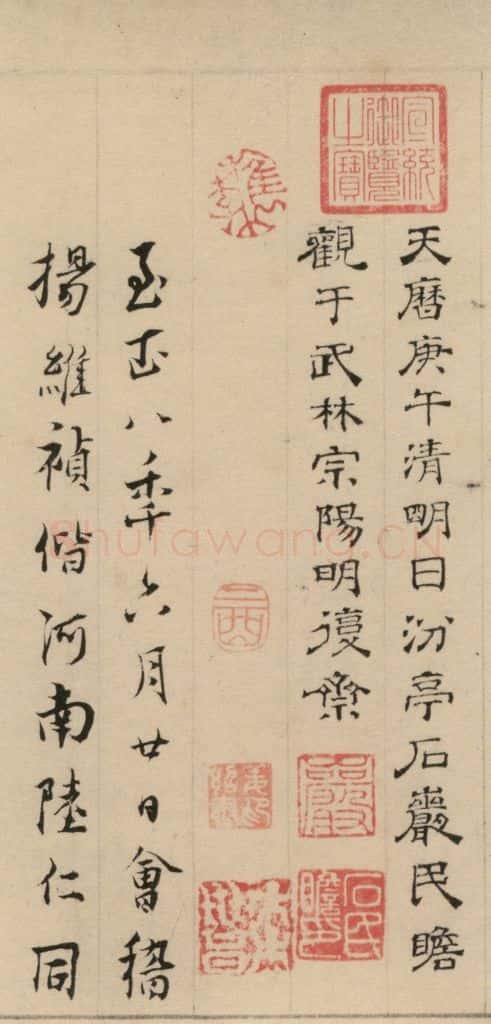 天曆庚午清明日汾亭石巖民瞻
觀于武林宗陽明復齋
至正八季六月廿日會稽
揚維禎偕河南陸仁同
宣統
御覽
之寶
石氏
民瞻
Shufawang.CN